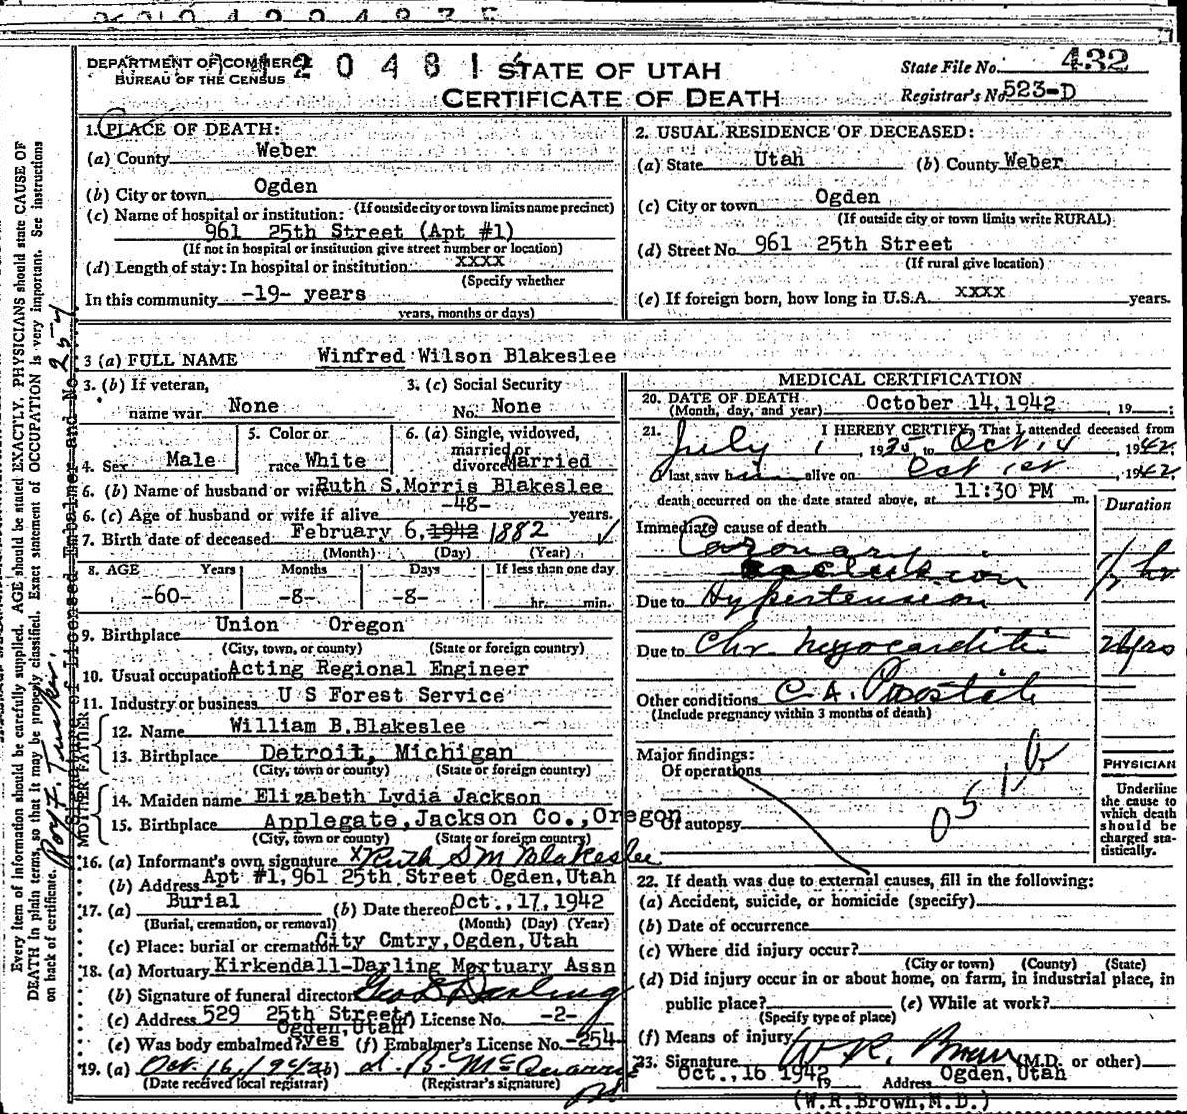 DEPARTMENT OF COMMERCE
BUREAU OF THE CENSUS
STATE OF UTAH
CERTIFICATE OF DEATH
State File No. 432
Registrar's No. 523-D
1. PLACE OF DEATH:
(a) County Weber
(b) City or town Ogden
(If outside city or town limits name precinct)
(c) Name of hospital or institution:
961 25th Street (Apt #1)
(If not in hospital or institution give street number or location)
(d) Length of stay: In hospital or institution xxxx
(Specify whether
In this community -19- years
years, months or days)
2. USUAL RESIDENCE OF DECEASED:
(a) State Utah (b) County Weber
(c) City or town Ogden
(If outside city or town limits write RURAL)
(d) Street No. 961 25th Street
(If rural give location)
(e) If foreign born, how long in U.S.A. xxxx years.
3 (a) FULL NAME Winfred Wilson Blakeslee
3. (b) If veteran,
name war None
3. (c) Social Security
No. None
4. Sex Male
5. Color or
race White
6. (a) Single, widowed,
married or
divorced Married
6. (b) Name of husband or wife Ruth S.Morris Blakeslee
6. (c) Age of husband or wife if alive -48- years.
7. Birth date of deceased February 6, 1942 1882
(Month) (Day) (Year)
8. AGE Years Months Days If less than one day
-60- -8- -8- hr. min.
9. Birthplace Union Oregon
(City, town, or county) (State or foreign country)
10. Usual occupation Acting Regional Engineer
11. Industry or business U S Forest Service
FATHER
12. Name William B.Blakeslee
13. Birthplace Detroit, Michigan
(City, town or county) (State or foreign country)
MOTHER
14. Maiden name Elizabeth Lydia Jackson
15. Birthplace Applegate, Jackson Co., Oregon
(City, town or county) (State or foreign country)
16. (a) Informant's own signature x Ruth S M Blakeslee
(b) Address Apt #1, 961 25th Street Ogden, Utah
17. (a) Burial (b) Date thereof Oct., 17, 1942
(Burial, cremation, or removal) (Month) (Day) (Year)
(c) Place: burial or cremation City Cmtry, Ogden, Utah
18. (a) Mortuary Kirkendall-Darling Mortuary Assn
(b) Signature of funeral director Geo S Darling
(c) Address 529 25th Street License No. -2-
Ogden, Utah
(e) Was body embalmed? yes (f) Embalmer's License No. -254
19. (a) Oct. 16, 1942 (b)
(Date received local registrar) (Registrar's signature)
MEDICAL CERTIFICATION
20. DATE OF DEATH
(Month, day, and year) October 14, 1942, 19
21. I HEREBY CERTIFY, That I attended deceased from
July 1, 1935 to Oct 14, 1942.
I last saw him alive on Oct 1st 1942
death occurred on the date stated above, at 11:30 PM m.
Duration
Immediate cause of death
Coronary
occlusion 1/2 hr
Due to Hypertension
Due to Chr myocarditis
Other conditions C.A. Prostate
(Include pregnancy within 3 months of death)
Major findings:
Of operations
Of autopsy
PHYSICIAN
Underline
the cause to
which death
should be
charged sta-
tistically.
22. If death was due to external causes, fill in the following:
(a) Accident, suicide, or homicide (specify)
(b) Date of occurrence
(c) Where did injury occur?
(City or town) (County) (State)
(d) Did injury occur in or about home, on farm, in industrial place, in
public place? (e) While at work?
(Specify type of place)
(f) Means of injury
23. Signature W R. Brown (M.D. or other)
Oct., 16 1942 19 Address Ogden, Utah
(W.R.Brown, M.D.)
Every item of information should be carefully supplied. AGE should be stated EXACTLY. PHYSICIANS should state CAUSE OF
DEATH in plain terms, so that it may be properly classified. Exact statement of OCCUPATION is very important. See instructions
on back of certificate.
Licensed Embalmer and No 254